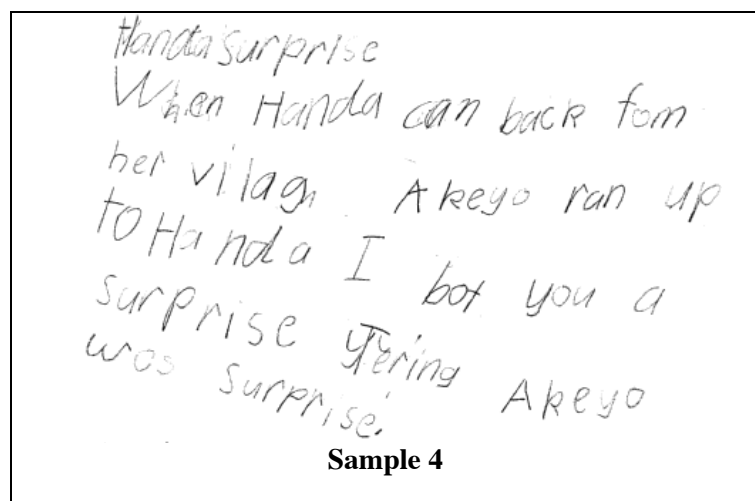 Handa surprise
When Handa can back fom
her vilagn. Akeyo ran up
to Handa I bot you a
surprise Tering Akeyo
was surprise.
Sample 4